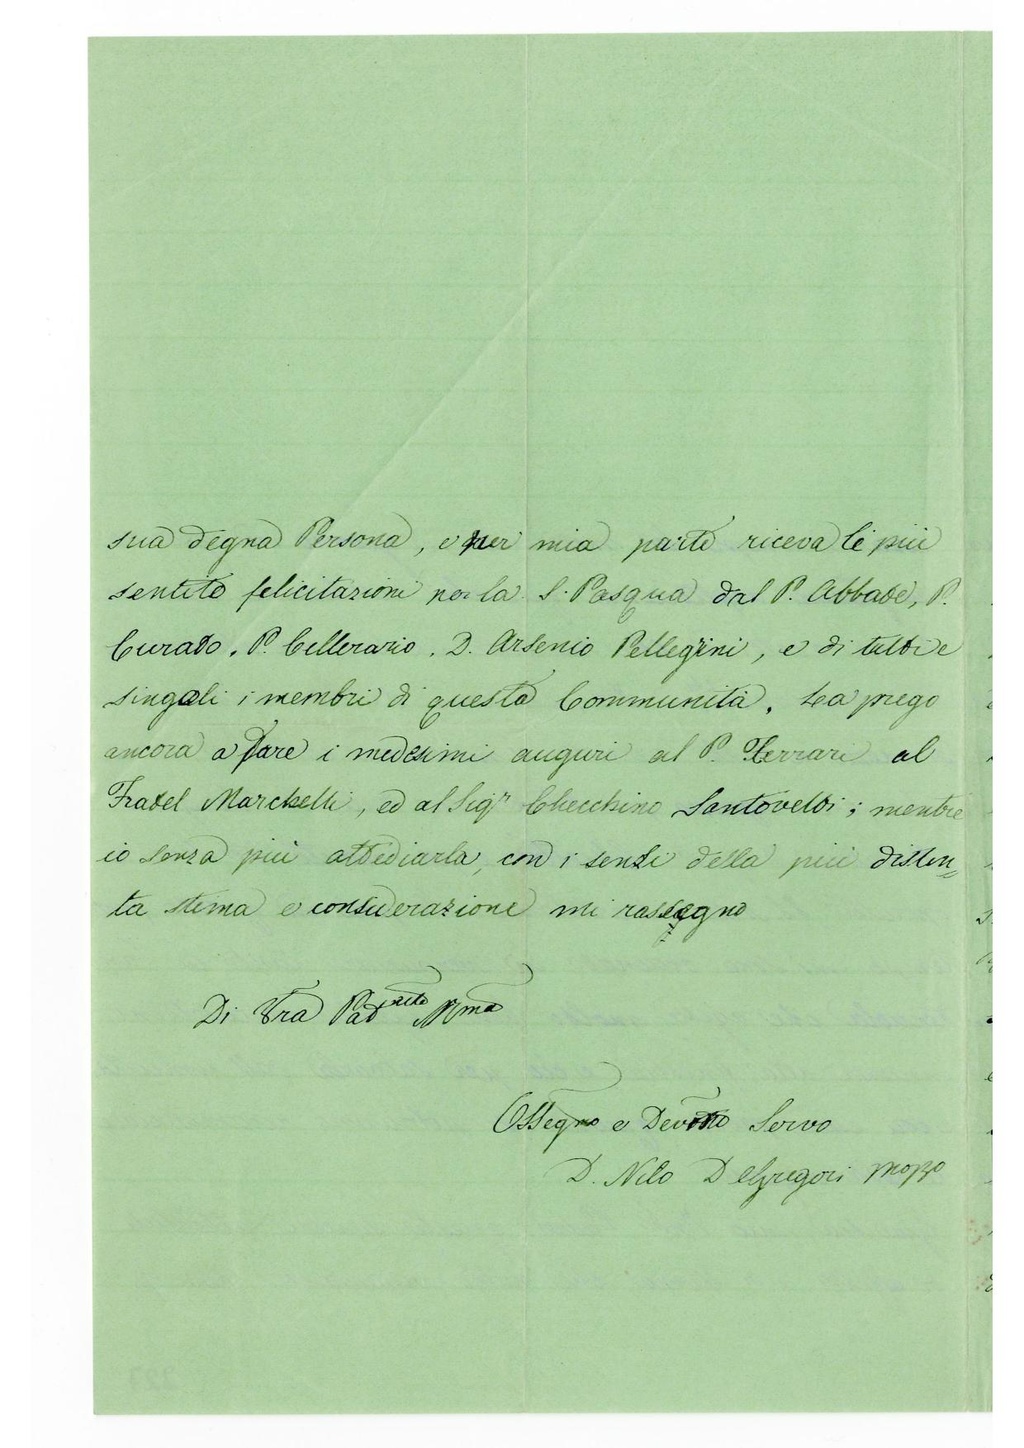 sua degna Persona, e per mia parte riceva le più
sentite felicitazioni per la S. Pasqua dal P. Abbate, P.
Curato, P. Cellerario, D. Arsenio Pellegrini, e di tutti e
singoli i membri di questa Communità. La prego
ancora a fare i medesimi auguri al P. Ferrari al
Fratel Marchetti, ed al Sigr Checchino Santovetti; mentre
io senza più attediarla, con i sensi della più distin-
ta stima e considerazione mi rassegno
Di Vra Patnità Rma
Ossegmo e Devotmo Servo
D. Nilo DeGregori